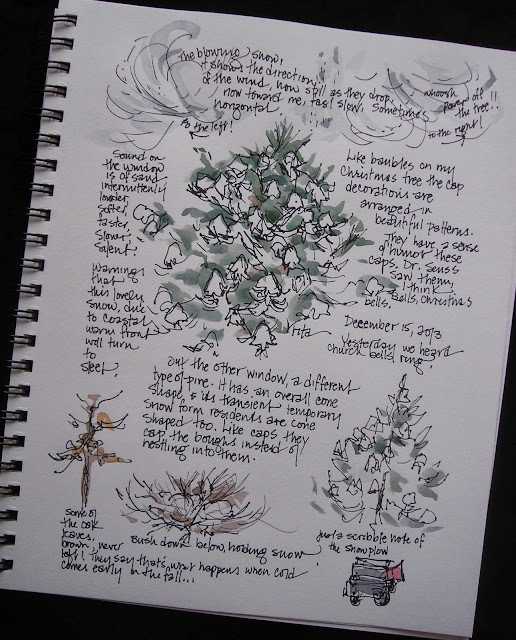 The blowing snow,
it shows the direction
of the wind, now still as they drop,
now toward me, fast, slow, sometimes
horizontal
to the left!
whoosh
off
the tree..!!
to the right!
Sound on
the window
is of sand
intermittently
louder,
softer,
faster,
slower,
silent.
Warnings
that
this lovely
snow, due
to coastal
warm front
will turn
to
sleet!
Like baubles on my
Christmas tree the cap
decorations are
arranged in
beautiful patterns.
They have a sense
of humor these
caps. Dr. Seuss
saw them,
I think!
bells, bells, Christmas
bells.
rita
December 15, 2013
Yesterday we heard
church bells ring!
Out the other window, a different
type of pine. It has an overall cone
shape, & its transient temporary
snow form residents are cone
shaped too. Like caps they
cap the boughs instead of
nestling into them.
Some of
the oak
leaves,
brown, never
left! They say that's what happens when cold
comes early in the fall...
Bush down below, holding snow
Just a scribble note of
the snowplow